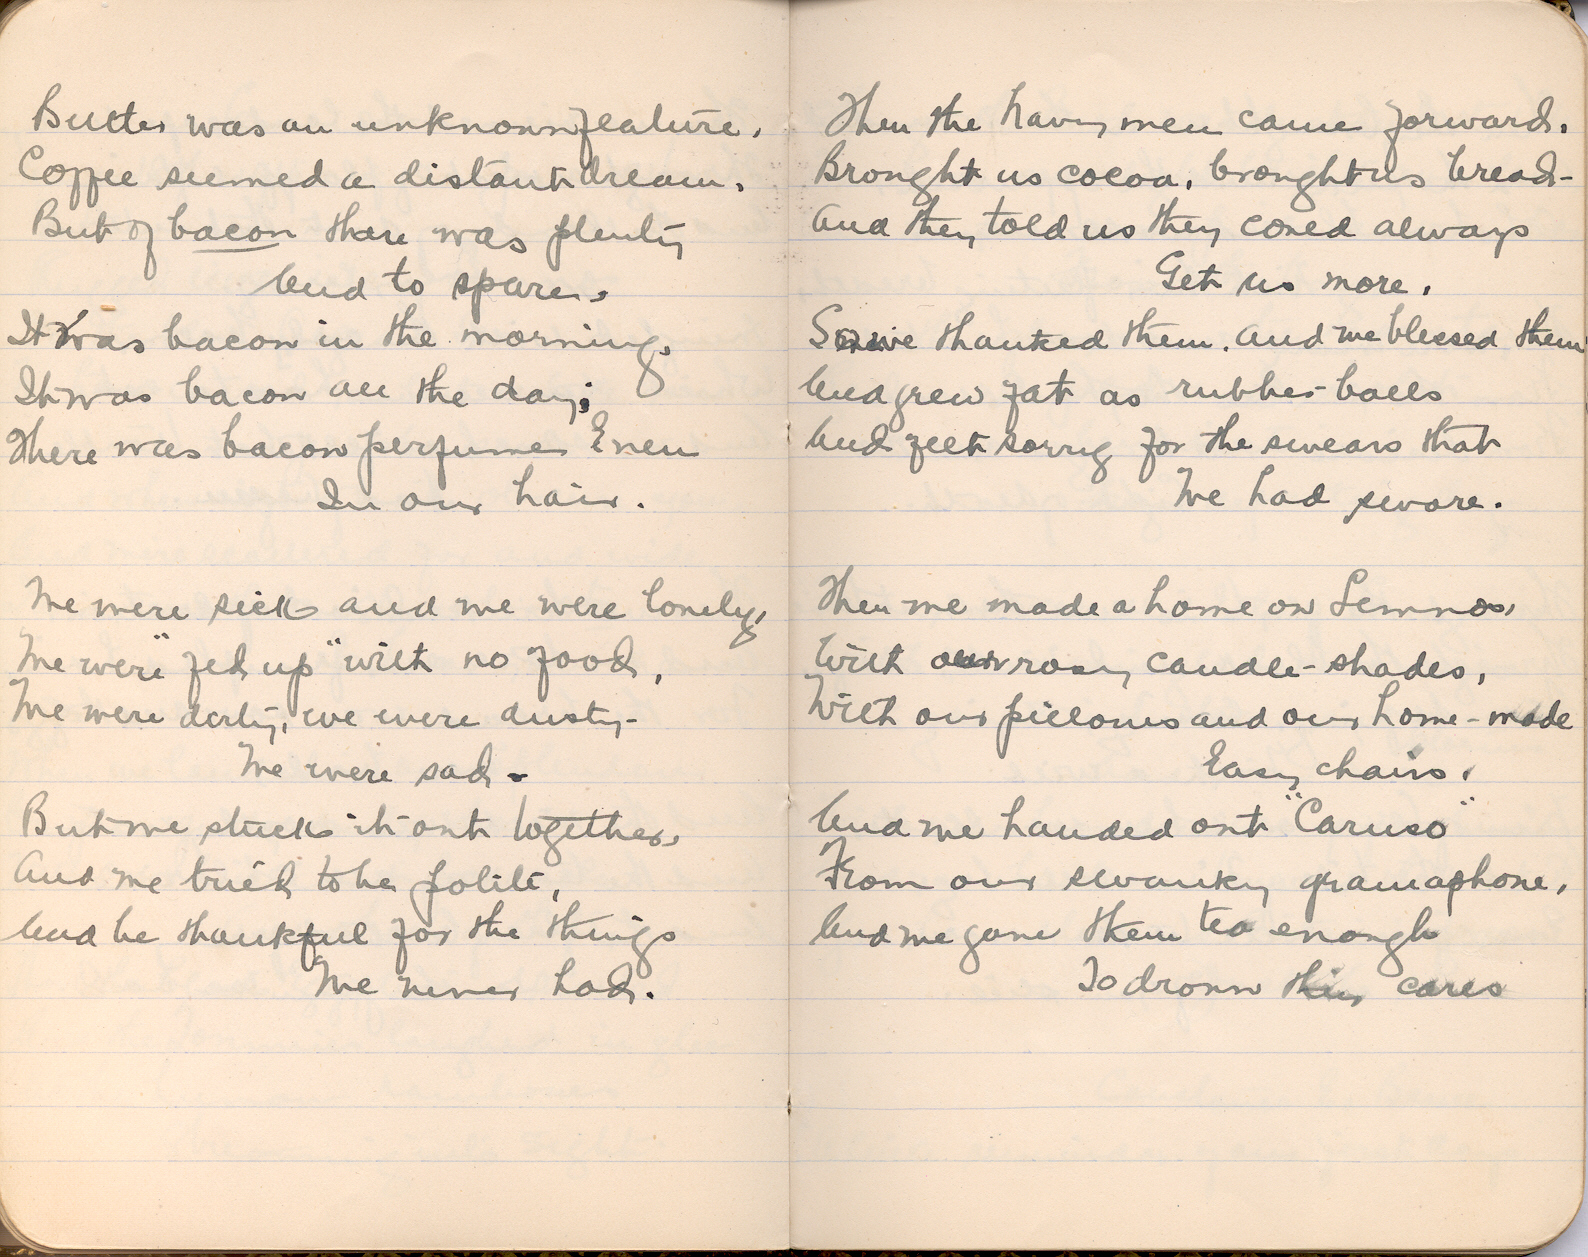 Butter was an unknown feature,
Coffee seemed a distant dream,
But of bacon there was plenty
And to spare.
It was bacon in the morning,
It was bacon all the day;
There was bacon perfume Even
In our hair.
We were sick and we were lonely,
We were "fed up" with no food,
We were dirty, we were dusty-
We were sad-
But we stuck it out together,
And we tried to be polite,
And be thankful for the things
We never had.
Then the Navy men came forward,
Brought us cocoa, brought us bread-
And they told us they coned always
Get us more.
So we thanked them, and we blessed them
And grew fat as rubber-balls
And felt sorry for the swears that
We had swore.
Then we made a home on Lemnos,
With our rosy candle-shades,
With our pillows and our home-made
Easy chairs,
And we handed out "Caruso"
From our swanky gramaphone,
And we gave them tea enough
To drown their cares